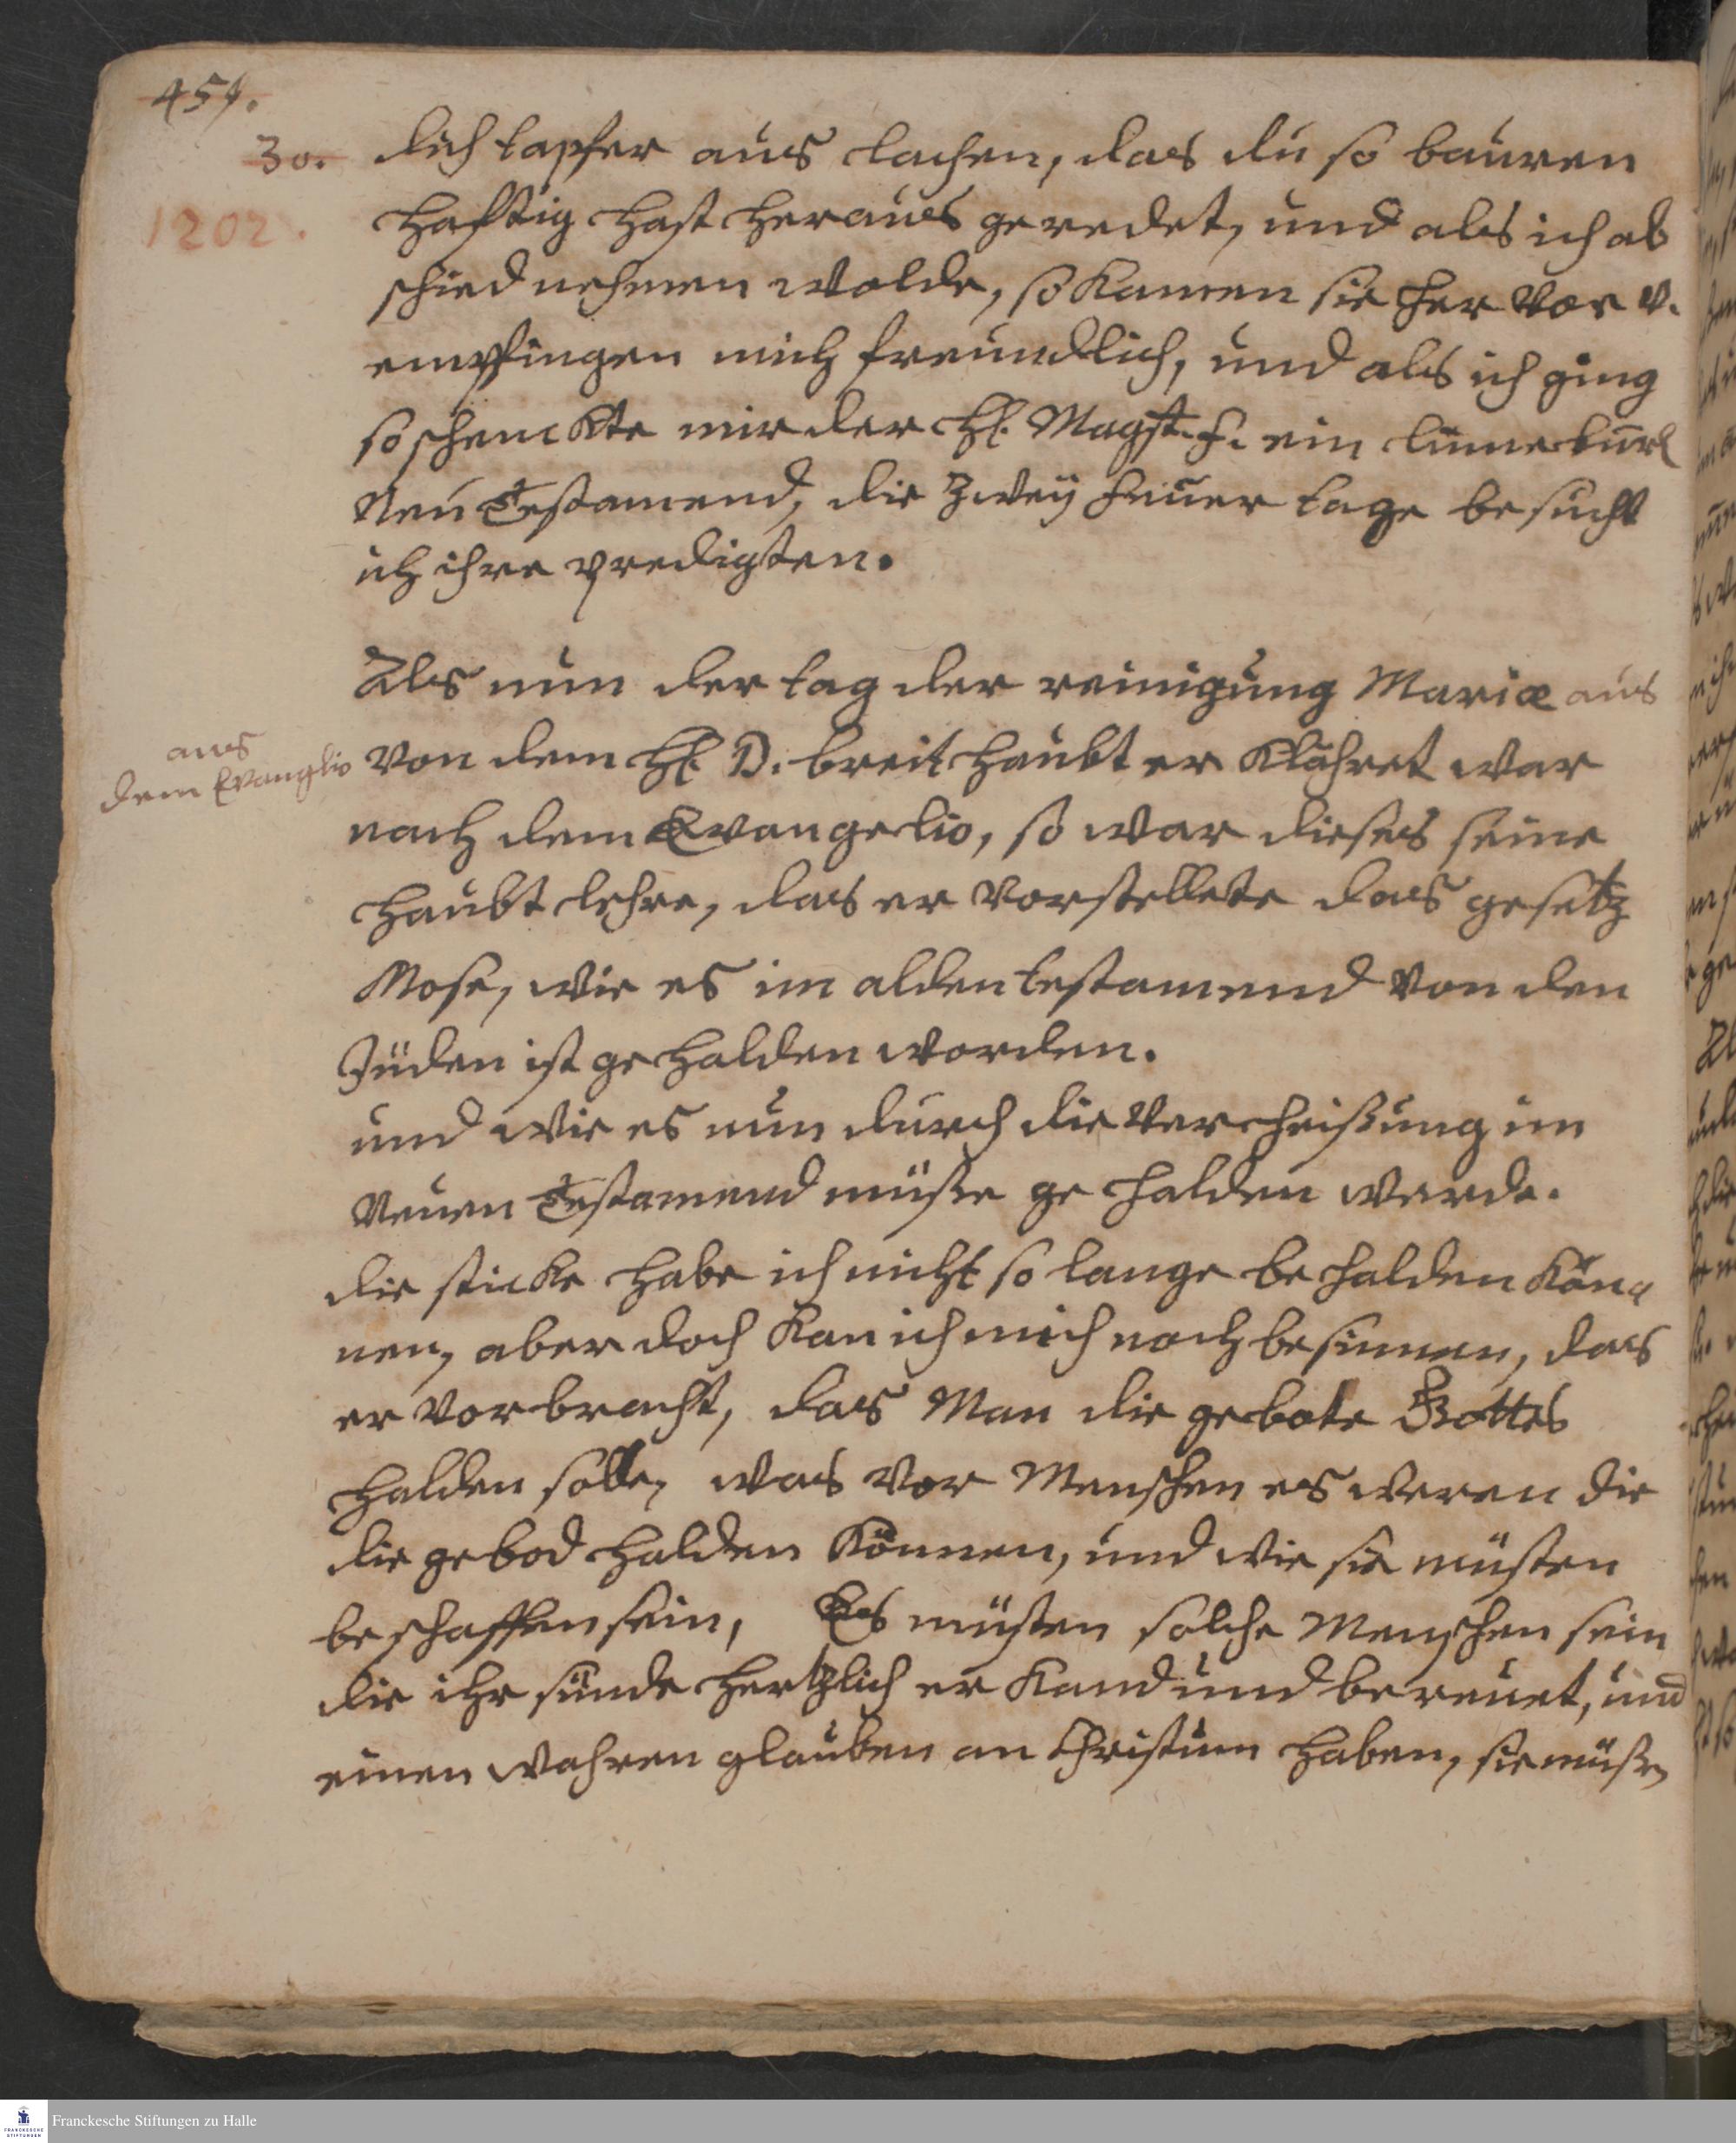 459.
30.
1202.
dich tapfer aus lachen, das du so bauren
hafftig hast heraus geredet, und als ich ab
schied nehmen wolde, so kamen sie her vor v.
empfingen mich freundlich, und als ich ging
so schenckte mir der H. Magst. F. ein
Neu Testamend, die zweÿ feuer tage besucht
ich ihre predigten.
Als nun der tag der reinigung Mariæ aus
aus
dem Evanglio
von dem H. D. breit haubt er klähret war
nach dem Evangelio, so war dieses seine
haubt lehre, das er vorstellete das gesetz
Mose, wie es im alden testamend von den
Jüden ist gehalden worden.
und wie es nun durch die verheißung im
Neuen Testamend müße ge halden werde.
die sticke habe ich nicht so lange be halden kön
nen, aber doch kan ich mich noch besinnen, das
er vor bracht, das Man die gebote Gottes
halden solle, was vor Menschen es weren die
die gebod halden können, und wie sie müsten
be schaffen sein, Es müsten solche Menschen sein
die ihr sünde hertzlich er kand und bereuet, und
einen wahren glauben an Christum haben, sie müßen
Franckesche Stiftungen zu Halle
FRANCKESCHE
STIFTUNGEN